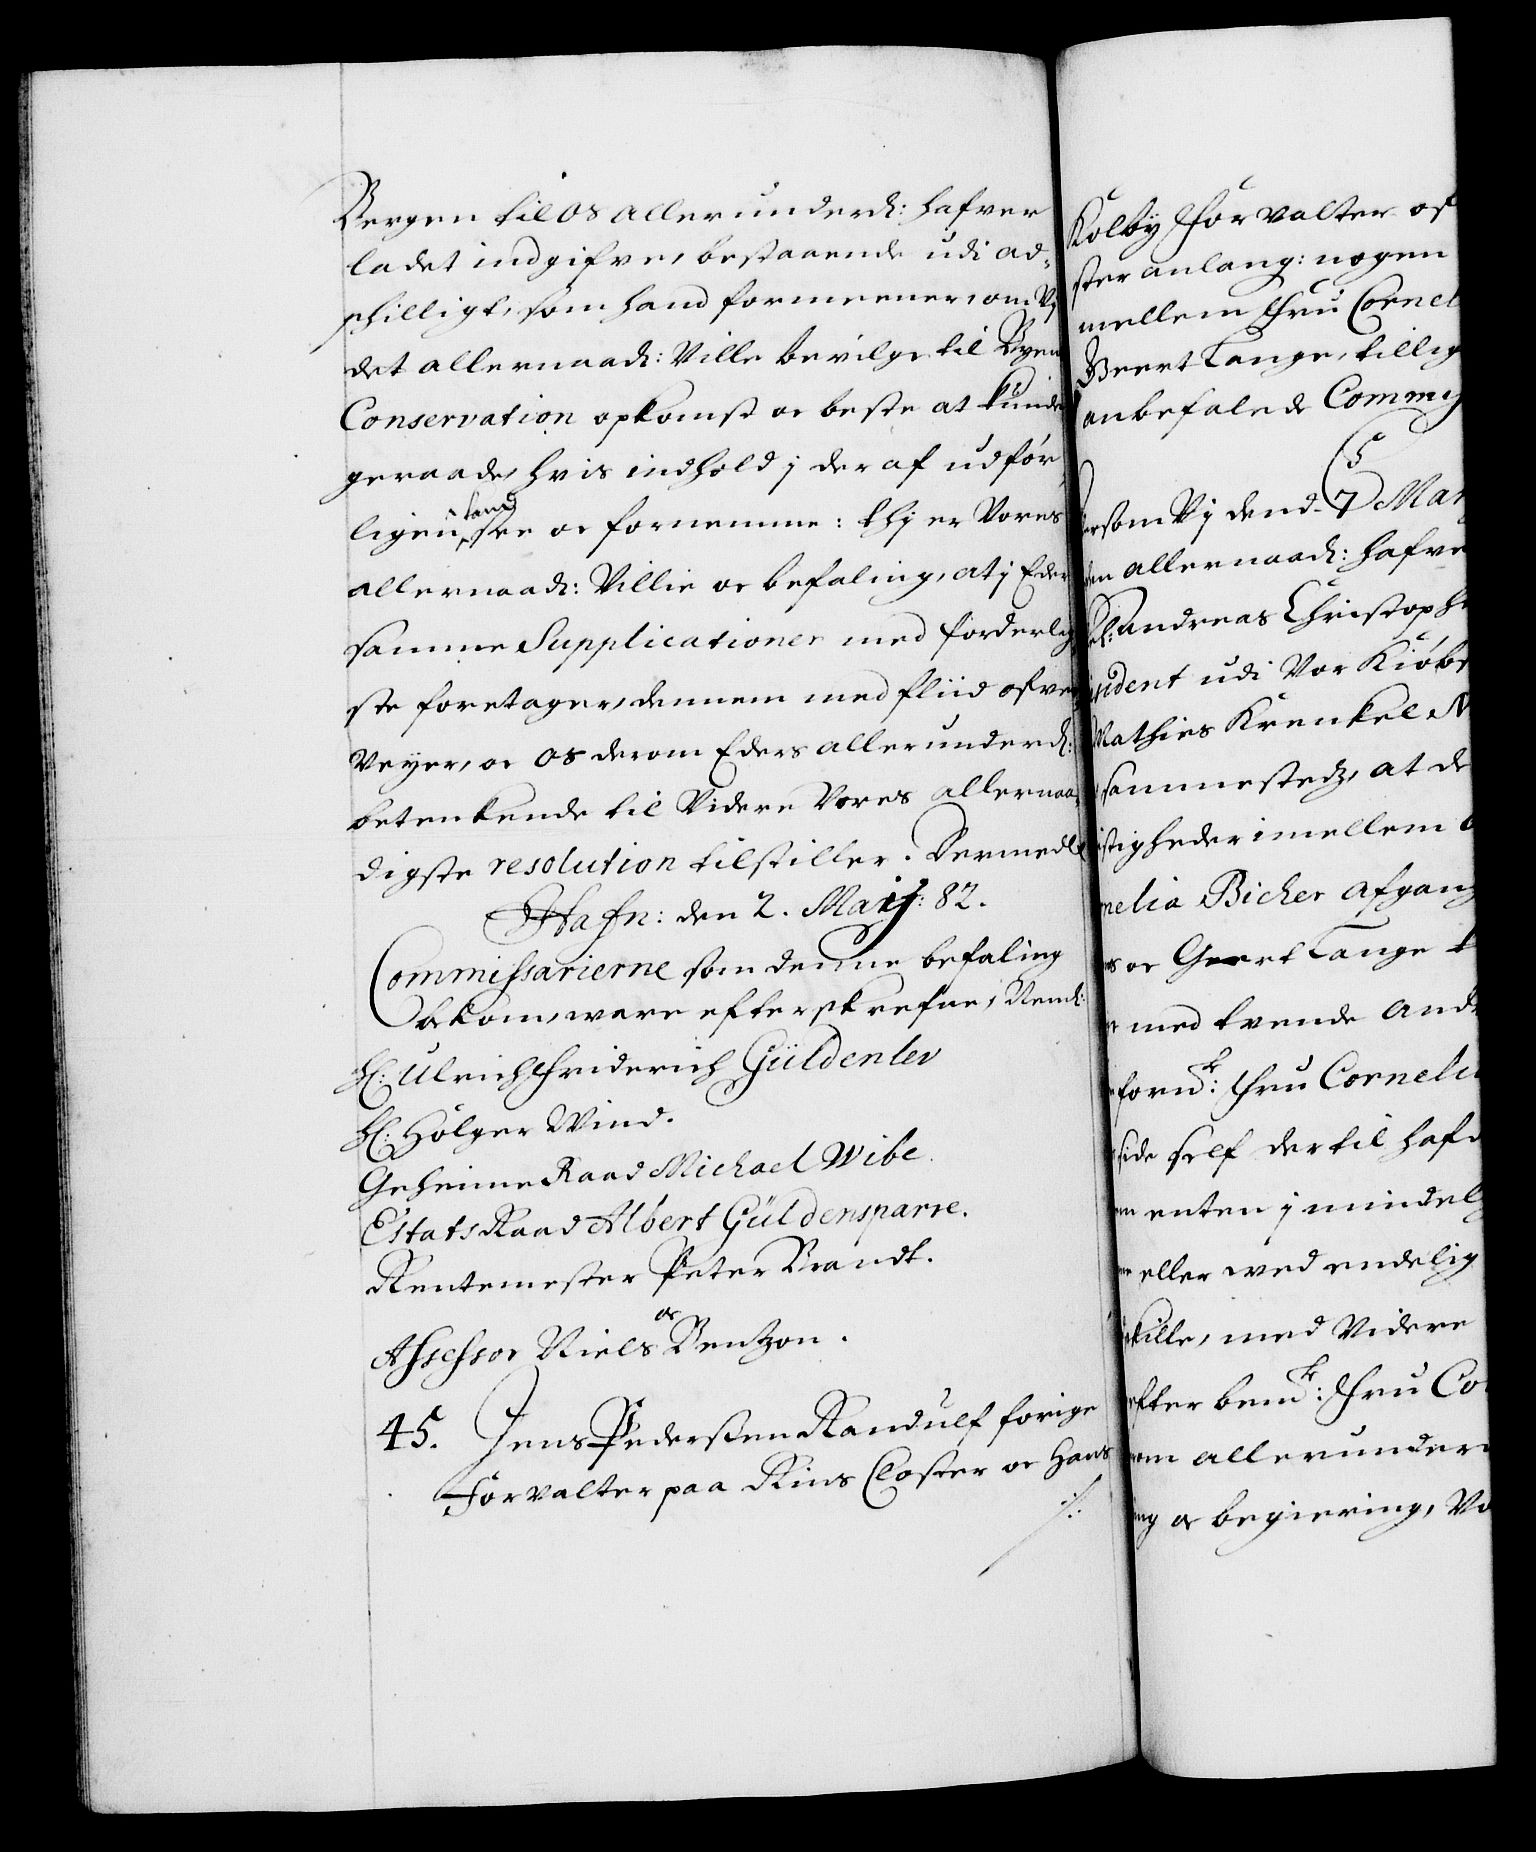 Bergen til os allerunderd: hafver
ladet indgifve, bestaaende udi ad-
schilligt, som hand formeener, om Vj
det allernaad: Ville bevilge til Byens
Conservation opkomst oc beste at kunde
geraade, hvis indhold j deraf udför-
ligen kand see oc fornemme: thj er Vores
allernaad: Villie oc befaling, at j Eder
samme Supplicationer med forderlig-
ste foretager, dennem med fliid ofver
Veyer, oc os derom Eders allerunderd:
betenkende til Videre Vores allernaa-
digste resolution tilstiller. Dermed
Hafn: den 2. Maij: 82.
Commissarierne som denne befaling
bekom, vare efterskrefne, Neml:
H: Ulrich Friderich Güldenlev
H: Holger Wind.
Geheime Raad Michael Wibe.
Estats Raad Albert Güldensparre.
Rentemester Peter Brandt.
oc
Assessor Niels Bentzon.
45. Jens Pedersen Randulf forige
Forvalter paa Rins Closter oc Hans
./.
Kolby Forvalter of
ster anlang: nogen
mellem Fru Cornel
Geert Lange, tillig
anbefalede Commis
som Vj dend 7 Mar
allernaad: hafve
Andreas Christoph
sident udi Vor Kiöbs
Mathies Krenkel
sammestedz, at de
stigheder imellem
nelia Bicher afgang
oc Geert Lange
med tvende and
fornd: Fru Cornelia
side self dertil hafv
enten j mindelig
eller ved endelig
skille, med Videre
efter bemd: Fru Co
allerunder
oc begiering, Vo